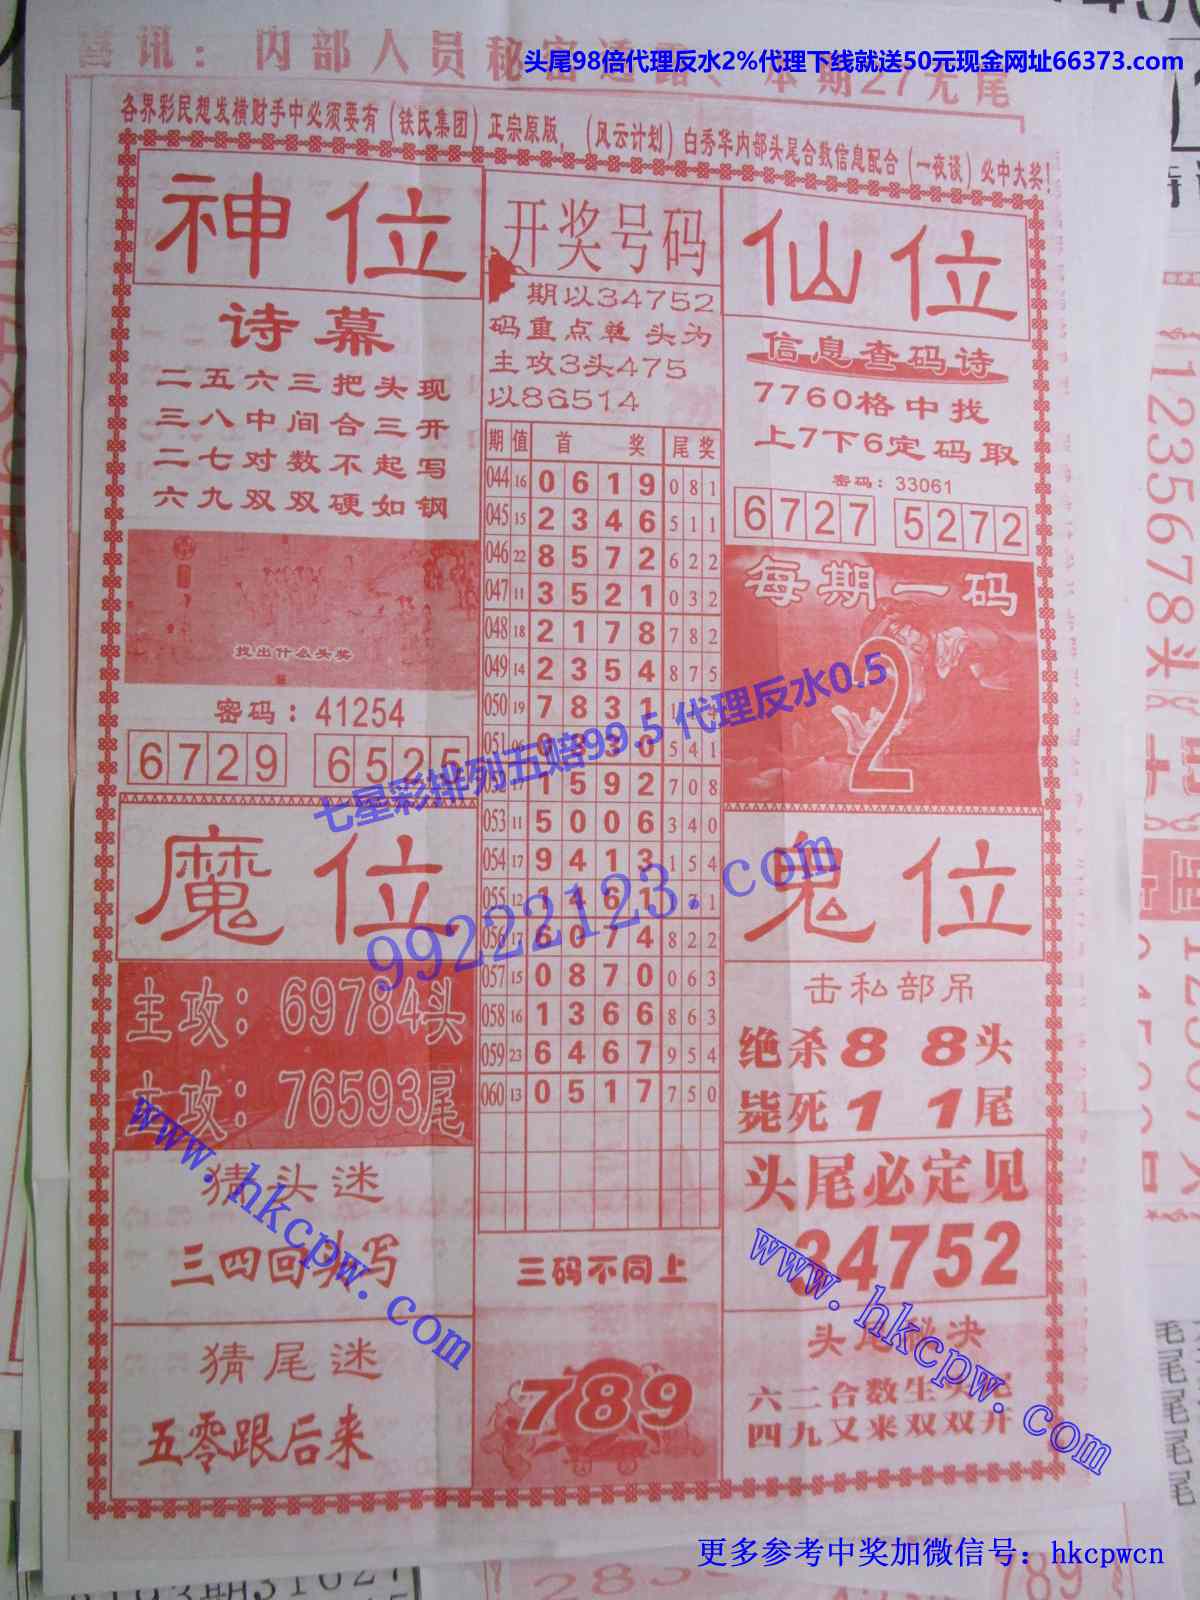 头尾98倍代理反水2%代理下线就送50元现金网址66373.com
喜讯：内部人员秘密透露、本期27无尾
各界彩民想发横财手中必须要有（铁氏集团）正宗原版，（风云计划）白秀华内部头尾合数信息配合（一夜谈）必中大奖！
神位
诗幕
二五六三把头现
三八中间合三开
二七对数不起写
六九双双硬如钢
找出什么头奖
密码：41254
6729 6525
开奖号码
期以34752
码重点单 头为
主攻3头475
以86514
期 值 首 奖 尾 奖
044 16 0 6 1 9 0 8 1
045 15 2 3 4 6 5 1 1
046 22 8 5 7 2 6 2 2
047 11 3 5 2 1 0 3 2
048 18 2 1 7 8 7 8 2
049 14 2 3 5 4 8 7 5
050 19 7 8 3 1 1
051 16 3 5 4 1
17 1 5 9 2 7 0 8
053 11 5 0 0 6 3 4 0
054 17 9 4 1 3 1 5 4
055 12 1 4 6 1 1
056 17 6 0 7 4 8 2 2
057 15 0 8 7 0 0 6 3
058 16 1 3 6 6 8 6 3
059 23 6 4 6 7 9 5 4
060 13 0 5 1 7 7 5 0
三码不同上
789
仙位
信息查码诗
7760格中找
上7下6定码取
密码：33061
6727 5272
每期一码
2
七星彩排列五赔99.5 代理反水0.5
99222123.com
魔位
主攻：69784头
主攻：76593尾
猜头迷
三四回头写
猜尾迷
五零跟后来
鬼位
击私部吊
绝杀8 8头
毙死1 1尾
头尾必定见
34752
头尾秘决
六二合数生头尾
四九又来双双开
www.hkcpw.com
www.hkcpw.com
更多参考中奖加微信号：hkcpwcn
1235678头